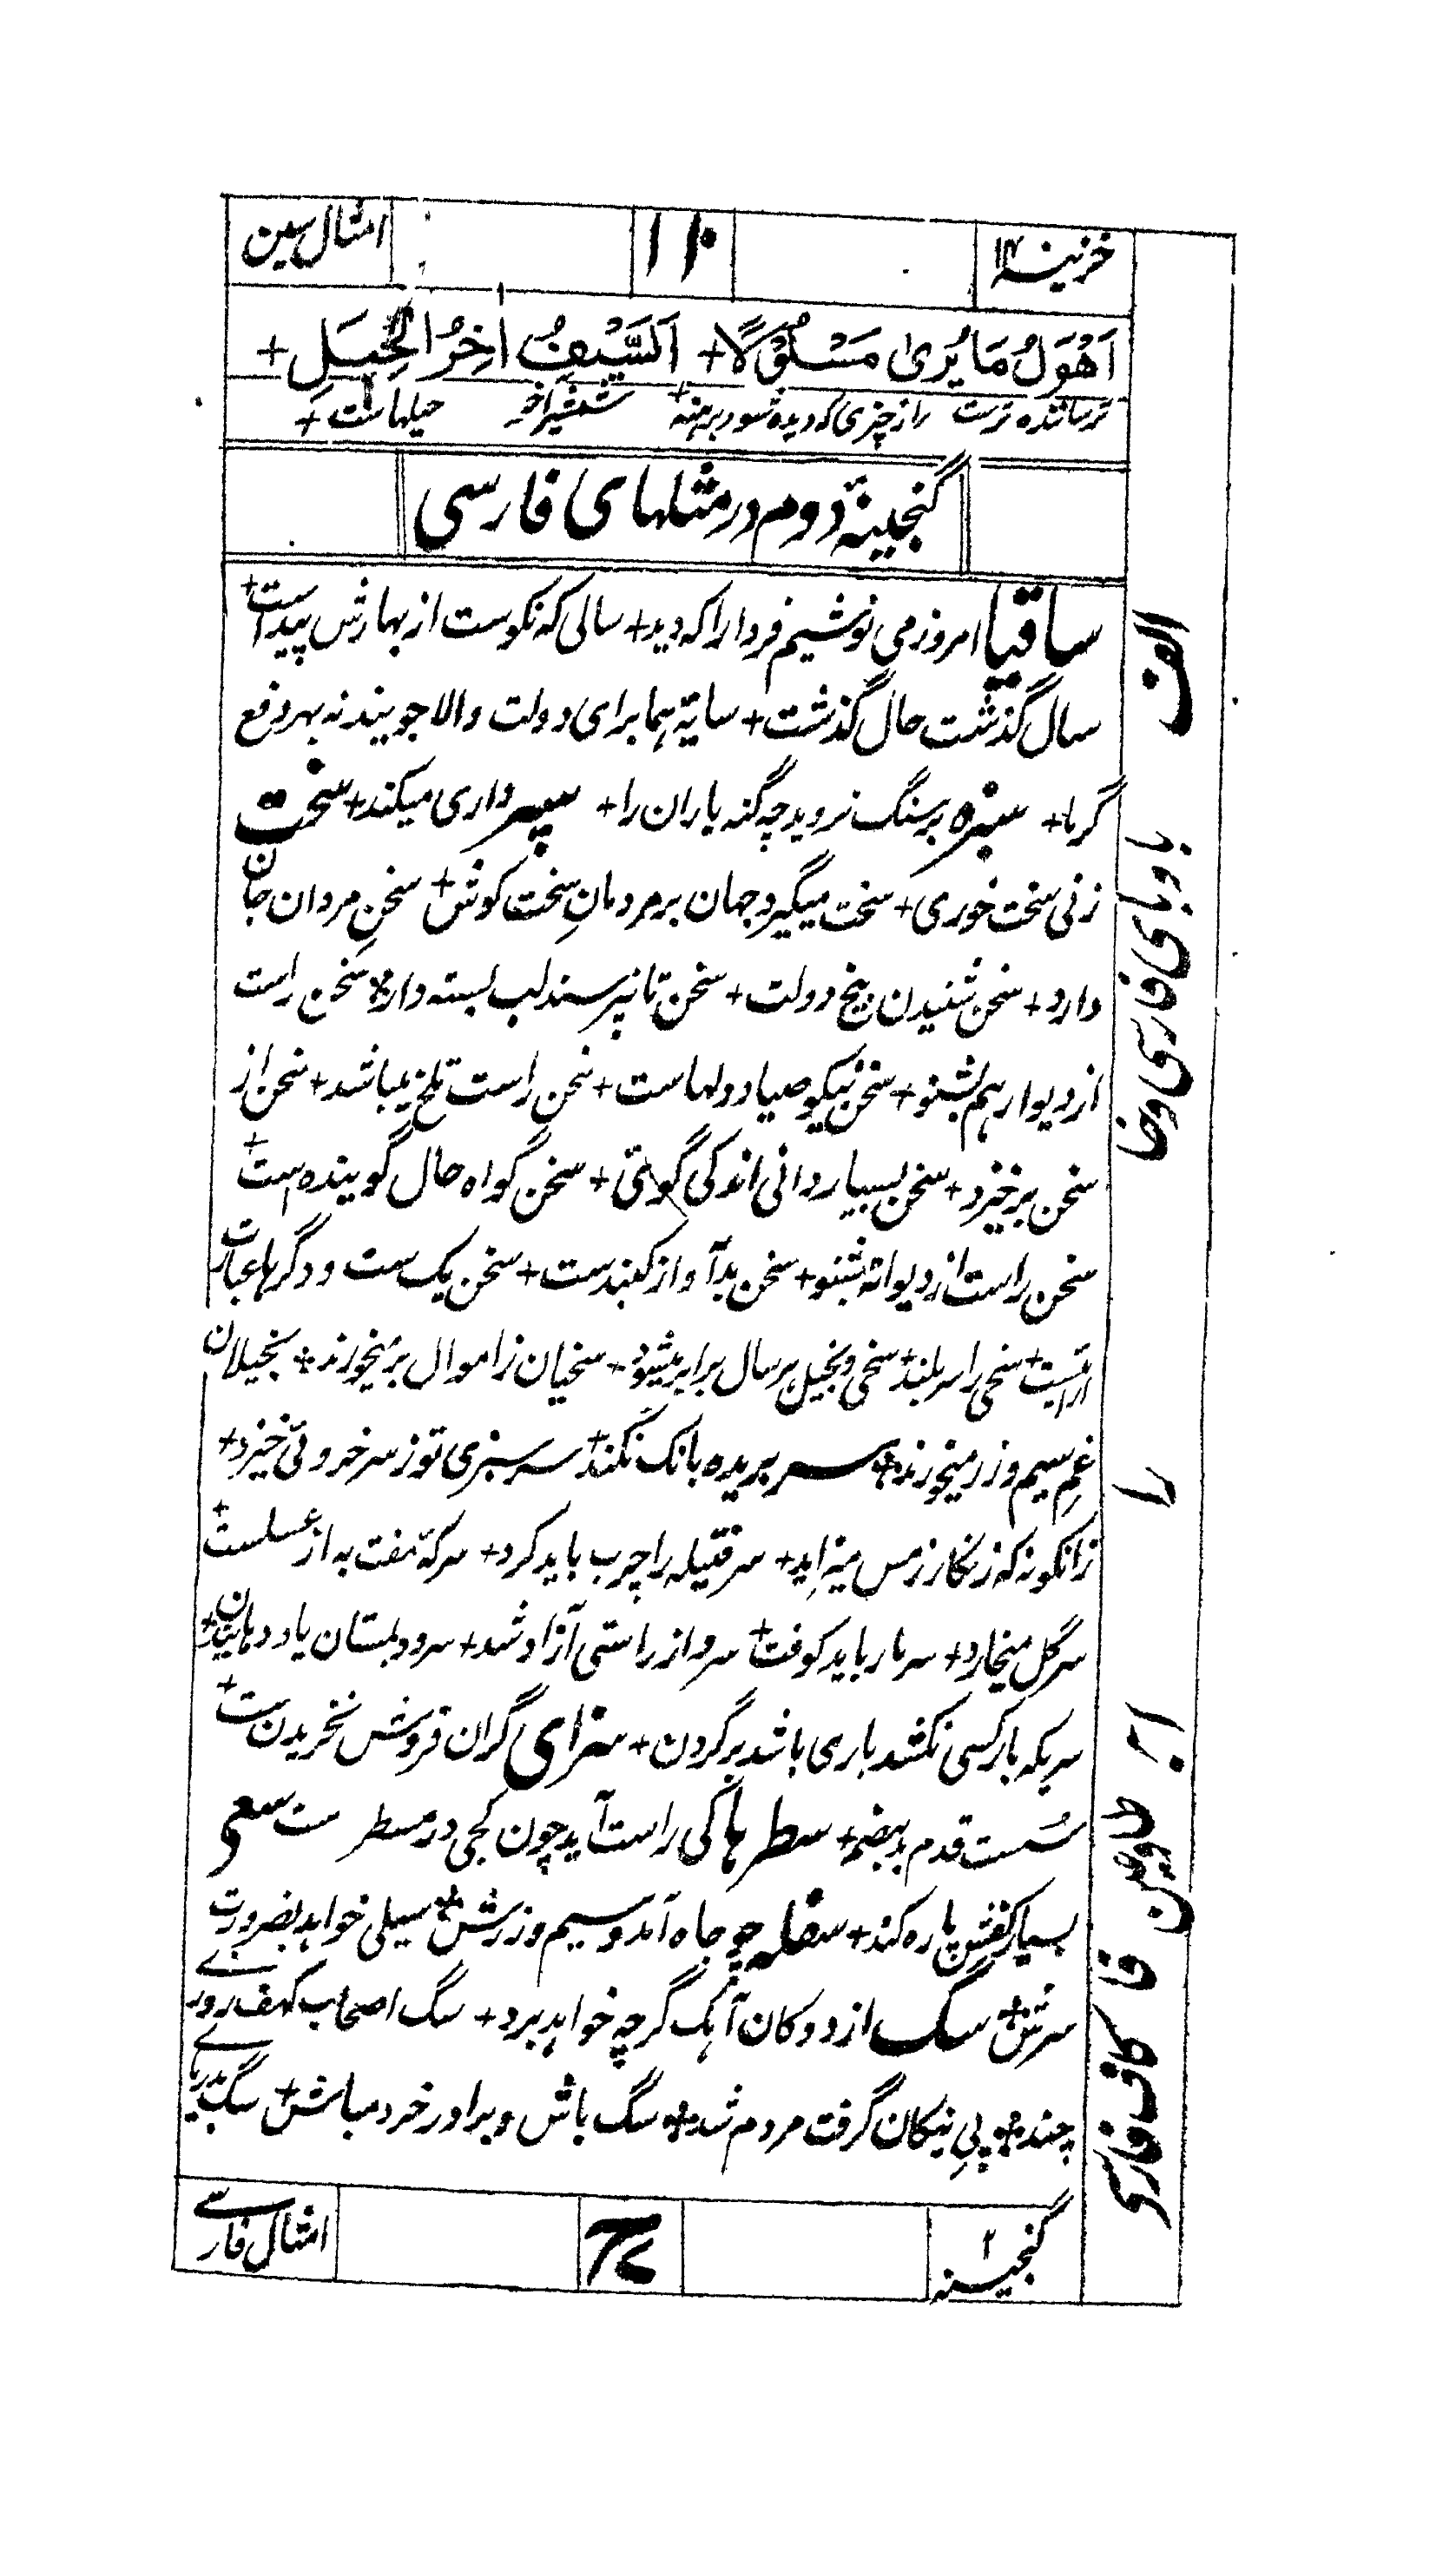 خزینۂ ۱۴
۱۱۰
امثال سین
اَهْوَلُ مَا یُریٰ مَسْلُوْلًا + اَلسَّیْفُ اٰخِرُ الْحِیَلِ +
ترسانندہ ترست از چیزی کہ دیدہ شود برہنہ + شمشیر آخر حیلہاست +
گنجینۂ دوم در مثلہای فارسی
ساقیا امروز می نوشیم فردا را کہ دید + سالی کہ نکوست از بہارش پیداست +
سال گذشت حال گذشت + سایۂ ہما برای دولت والا جویند نہ بہر دفع
گرما + سبزہ بر سنگ نروید چہ گنہ باران را + سپر داری میکند + سخت
زنی سخت خوری + سخت میگیرد جہان بر مردمانِ سخت کوش + سخنِ مردان جان
دارد + سخن شنیدن بیخ دولت + سخن تا نپرسند لب بستہ دار + سخن راست
از دیوار ہم بشنو + سخن نیکو صیاد دلہاست + سخن راست تلخ میباشد + سخن از
سخن برخیزد + سخن بسیار دانی اندکی گوئی + سخن گواہ حال گویندہ است +
سخن راست از دیوانہ بشنو + سخن بد آواز گنبدست + سخن یک ست و دگرہا عبارت
ارائیست + سخی را سر بلند + سخی و بخیل ہر سال برابر میشود + سخیان ز اموال بر میخورند + بخیلان
غمِ سیم و زر میخورند + سر بریدہ بانگ نکند + سرسبزی تو ز سرخروئی خیزد +
زانگونہ کہ زنگار ز مس میزاید + سر فتیلہ را چرب باید کرد + سرکۂ مفت بہ از عسلست +
سر گل میخارد + سر مار باید کوفت + سرو از راستی آزاد شد + سرود بمستان یاد دہانیدن +
سریکہ بار کسی نکشد باری باشد بر گردن + سزای گران فروش نخریدن ست +
سست قدم بد بیضہ + سطرہا کی راست آید چون کجی در مسطر ست سعی
بسیار کفش پارہ کند + سفلہ چو جاہ آمد و سیم و زرش + سیلی خواہد بضرورت
سرش + سگ از دوکان آہنگر چہ خواہد برد + سگ اصحاب کہف روزے
چند + پیِ نیکان گرفت مردم شد + سگ باش و برادر خرد مباش + سگ بدریای
گنجینہ ۲
امثال فارسے
الف
با و بای فارسی و خا
را
فا
کاف فارسی